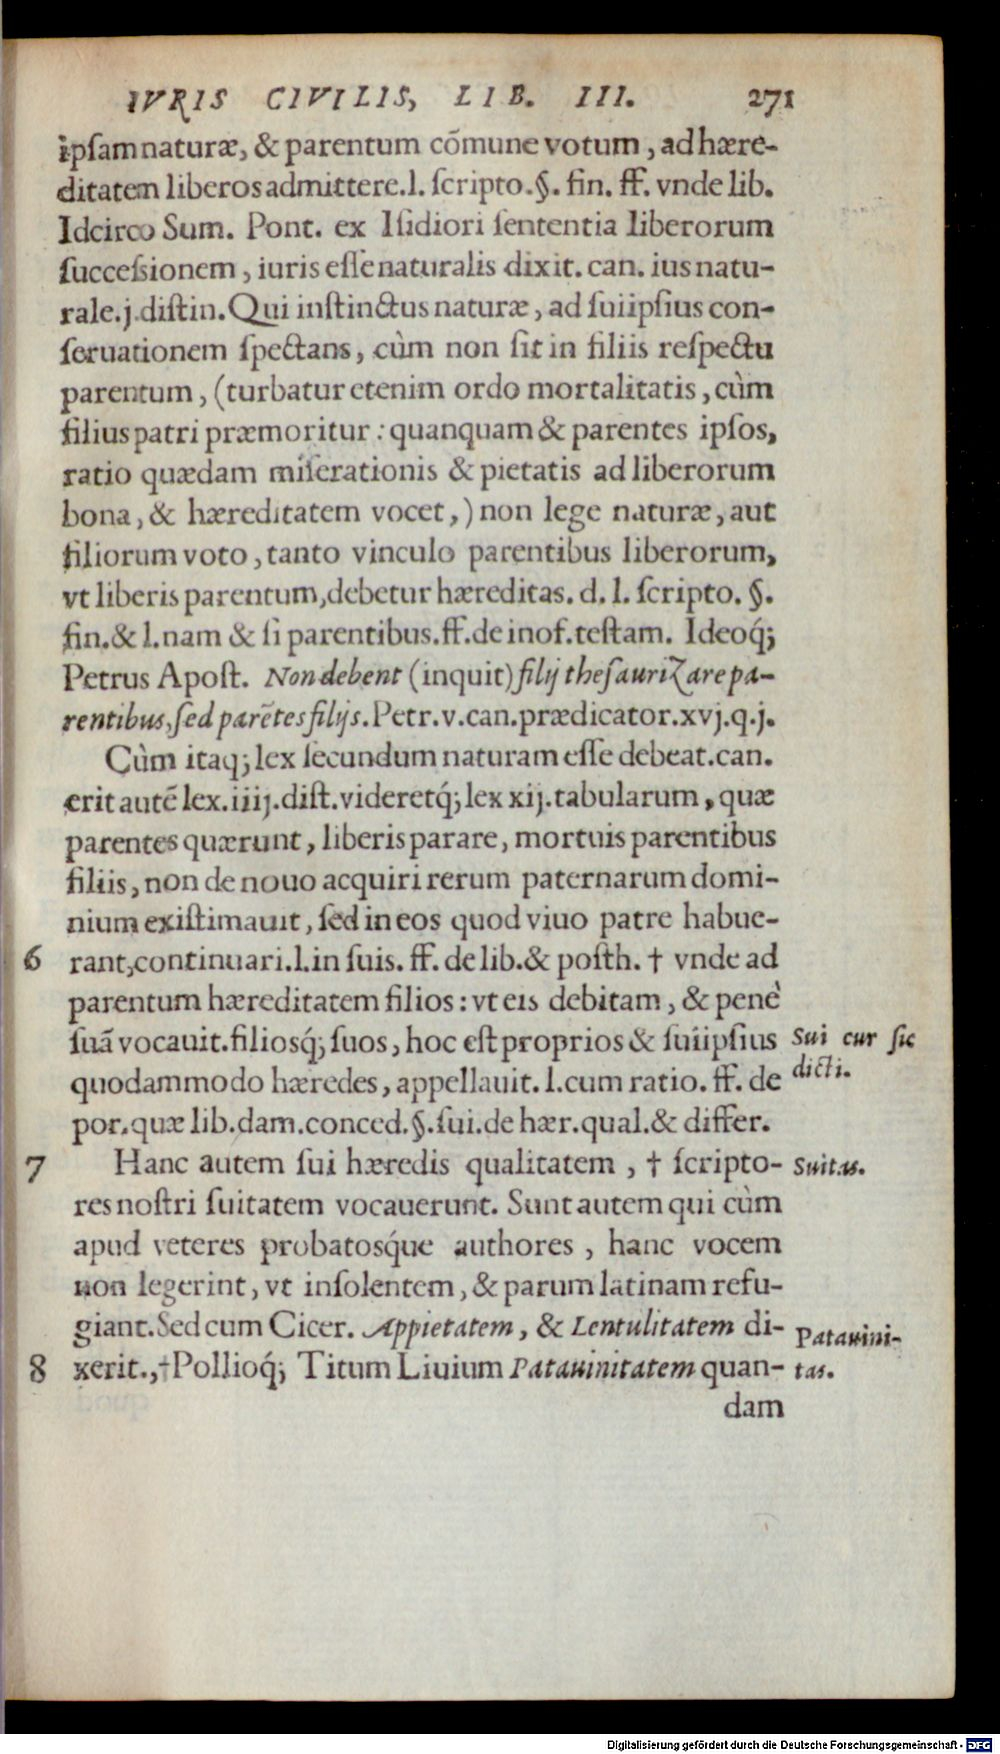 IVRIS CIVILIS, LIB. III. 271
ipſam naturæ, & parentum cõmune votum, ad hære-
ditatem liberos admittere. l. ſcripto. §. fin. ff. vnde lib.
Idcirco Sum. Pont. ex Iſidiori ſententia liberorum
ſucceſsionem, iuris eſſe naturalis dixit. can. ius natu-
rale. j. diſtin. Qui inſtinctus naturæ, ad ſuiipſius con-
ſeruationem ſpectans, cùm non ſit in filiis reſpectu
parentum, (turbatur etenim ordo mortalitatis, cùm
filius patri præmoritur: quanquam & parentes ipſos,
ratio quædam miſerationis & pietatis ad liberorum
bona, & hæreditatem vocet,) non lege naturæ, aut
filiorum voto, tanto vinculo parentibus liberorum,
vt liberis parentum, debetur hæreditas. d. l. ſcripto. §.
fin. & l. nam & ſi parentibus. ff. de inof. teſtam. Ideoq́;
Petrus Apoſt. Non debent (inquit) filij theſaurizare pa-
rentibus, ſed parẽtes filijs. Petr. v. can. prædicator. xvj. q. j.
Cùm itaq; lex ſecundum naturam eſſe debeat. can.
erit autẽ lex. iiij. diſt. videretq́; lex xij. tabularum, quæ
parentes quærunt, liberis parare, mortuis parentibus
filiis, non de nouo acquiri rerum paternarum domi-
nium exiſtimauit, ſed in eos quod viuo patre habue-
6 rant, continuari. l. in ſuis. ff. de lib. & poſth. † vnde ad
parentum hæreditatem filios: vt eis debitam, & penè
ſuã vocauit. filiosq́; ſuos, hoc eſt proprios & ſuiipſius Sui cur ſic
quodammodo hæredes, appellauit. l. cum ratio. ff. de dicti.
por. quæ lib. dam. conced. §. ſui. de hær. qual. & differ.
7 Hanc autem ſui hæredis qualitatem, † ſcripto- Suitas.
res noſtri ſuitatem vocauerunt. Sunt autem qui cùm
apud veteres probatosq́ue authores, hanc vocem
non legerint, vt inſolentem, & parum latinam refu-
giant. Sed cum Cicer. Appietatem, & Lentulitatem di- Patauini-
8 xerit., † Pollioq́; Titum Liuium Patauinitatem quan- tas.
dam
Digitalisierung gefördert durch die Deutsche Forschungsgemeinschaft - DFG